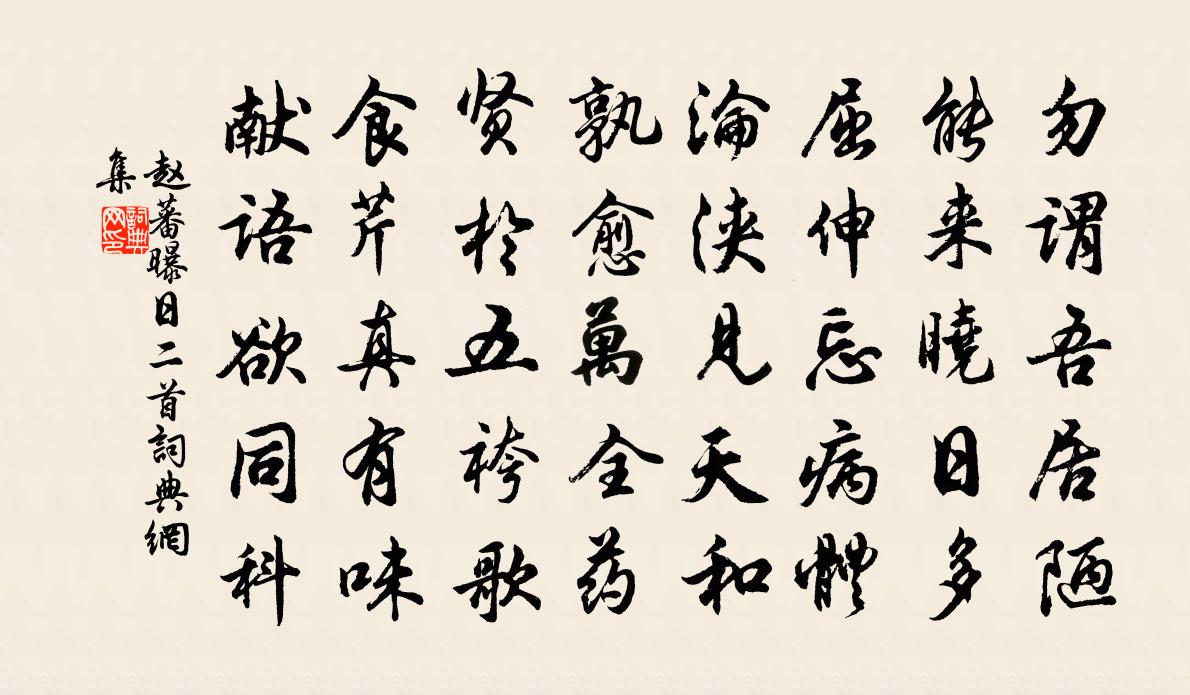 勿谓吾居陋
能来晓日多
屈伸忘病體
淪浃見天和
孰愈萬全药
贤於五袴歌
食芹真有味
献语欲同科
赵蕃曝日二首詞典網
集
詞典网印